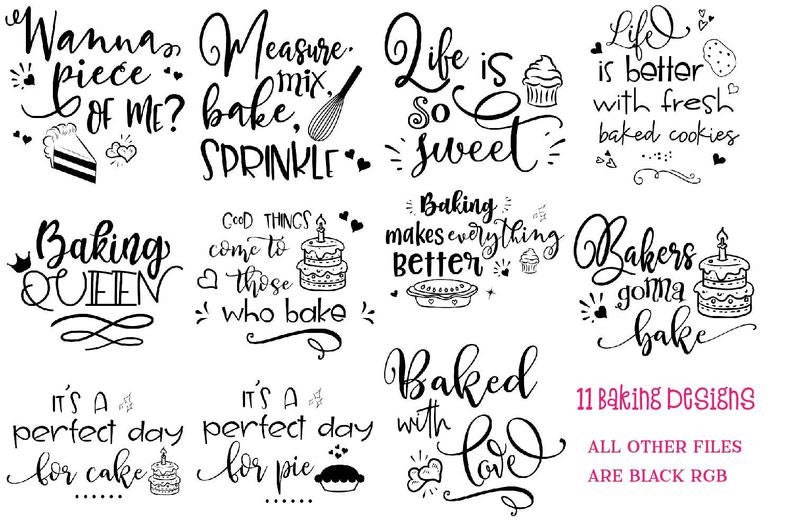 Wanna
piece
OF ME?
Measure,
mix,
bake,
SPRINKLE
Life is
so
sweet
Life
is better
with fresh
baked cookies
Baking
QUEEN
GOOD THINGS
come to
those
who bake
Baking
makes everything
BETTER
Bakers
gonna
bake
IT'S A
perfect day
for cake
IT'S A
perfect day
for pie
Baked
with
love
11 Baking Designs
ALL OTHER FILES
ARE BLACK RGB